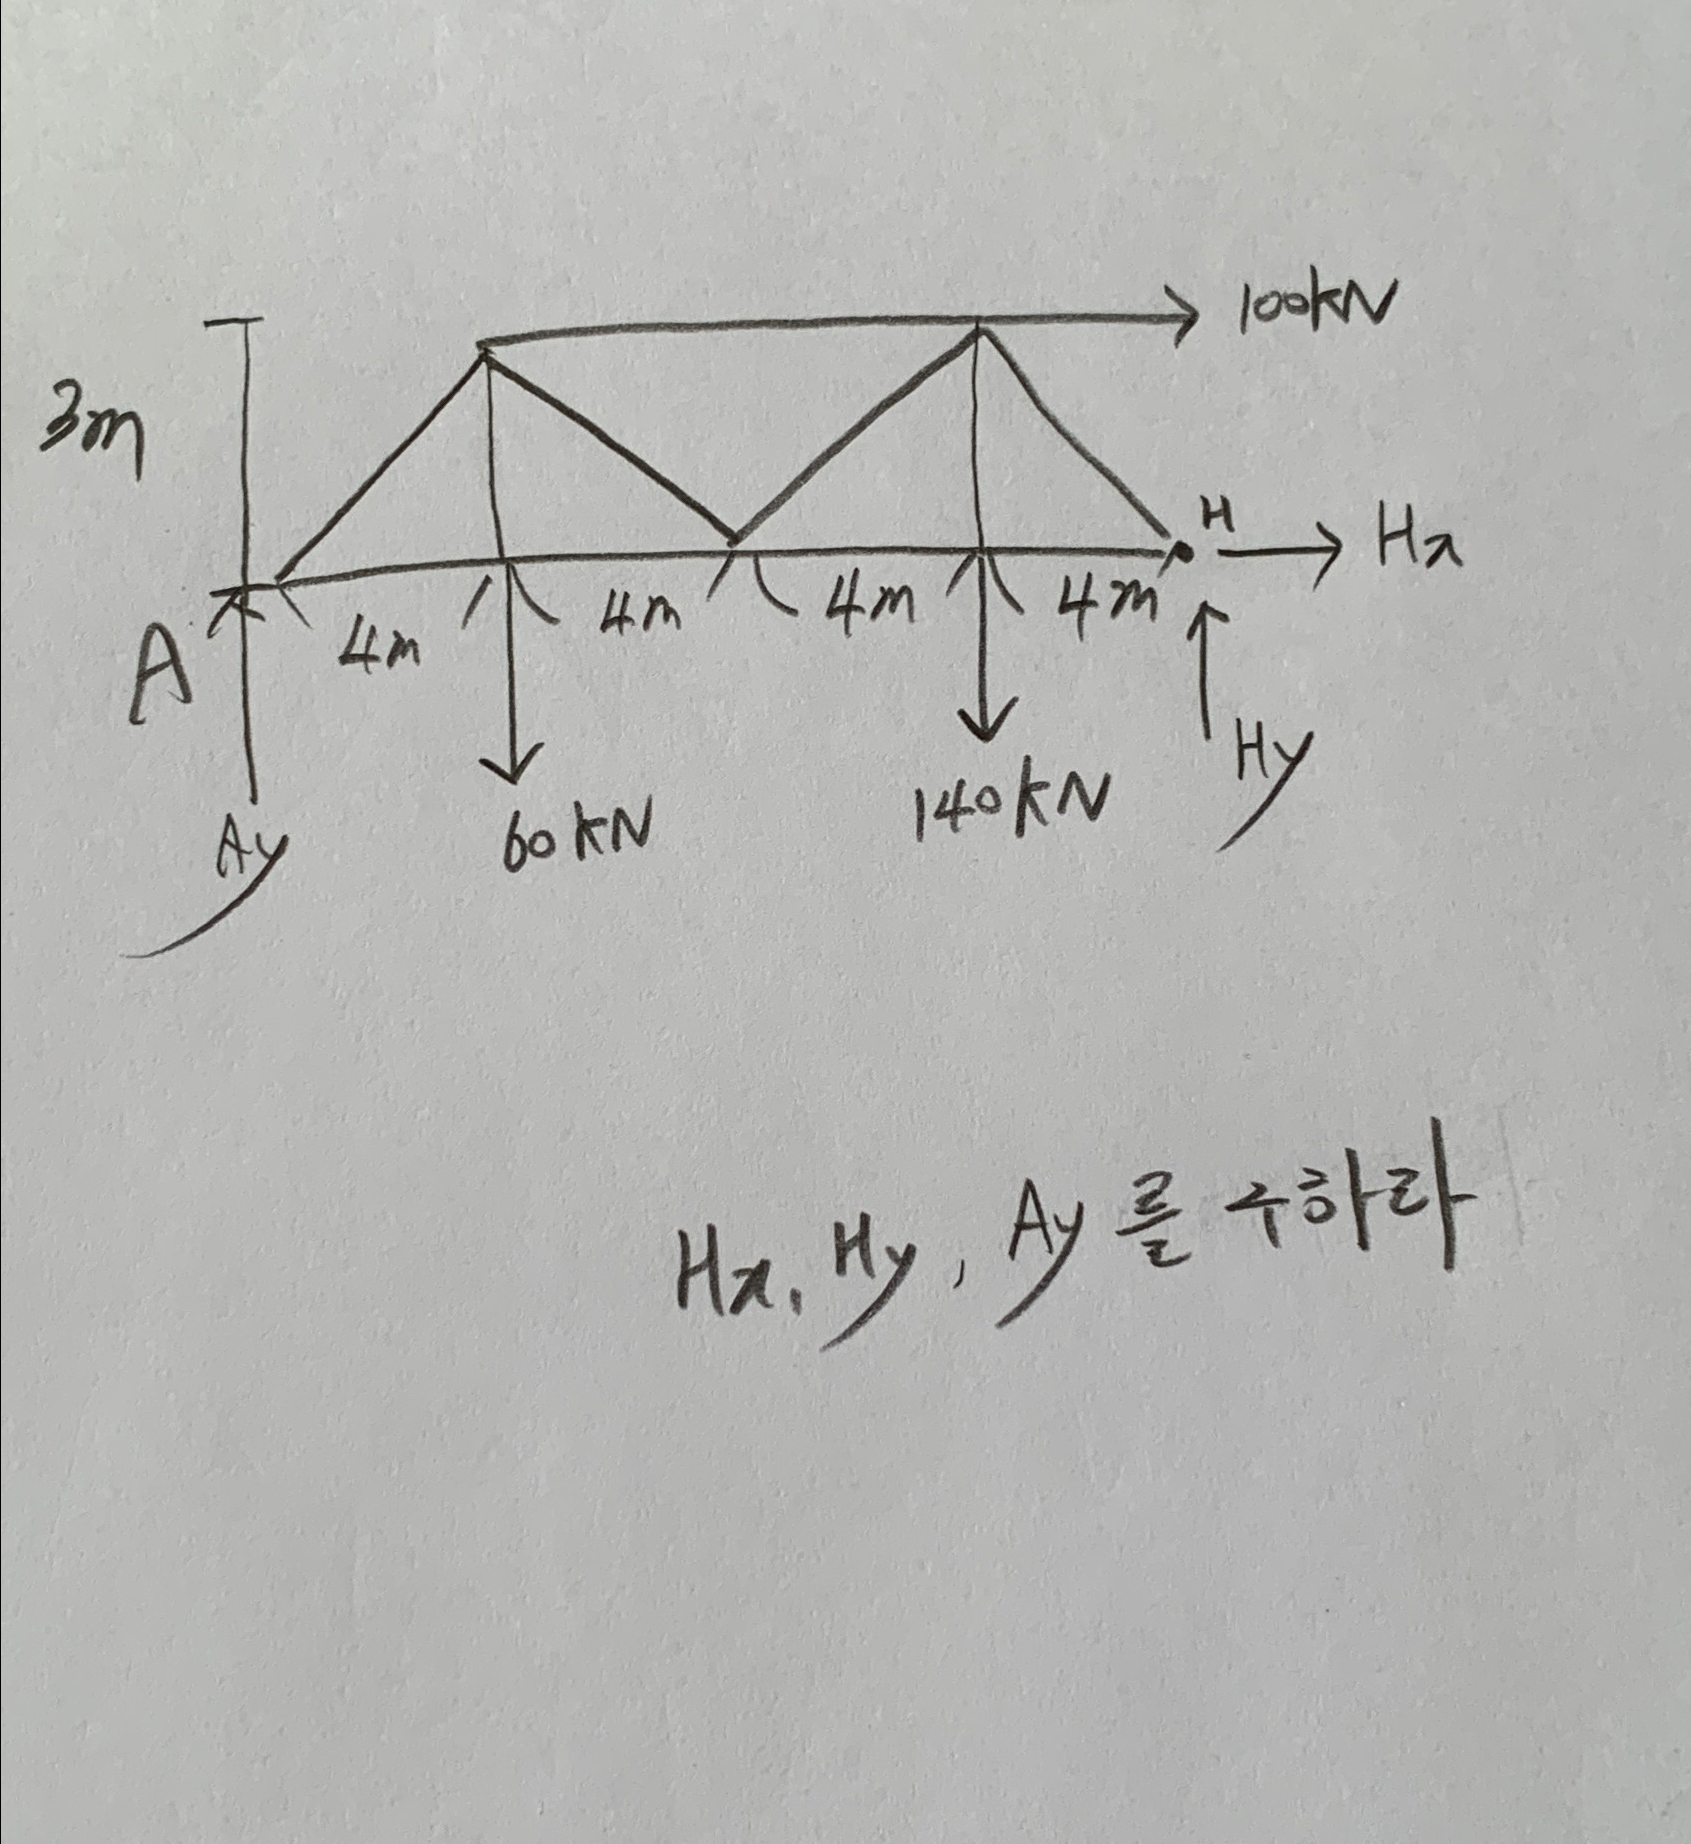 100kN
3m
H
Hx
A
4m
4m
4m
4m
Hy
60kN
140kN
Ay
Hx, Hy, Ay를 구하라